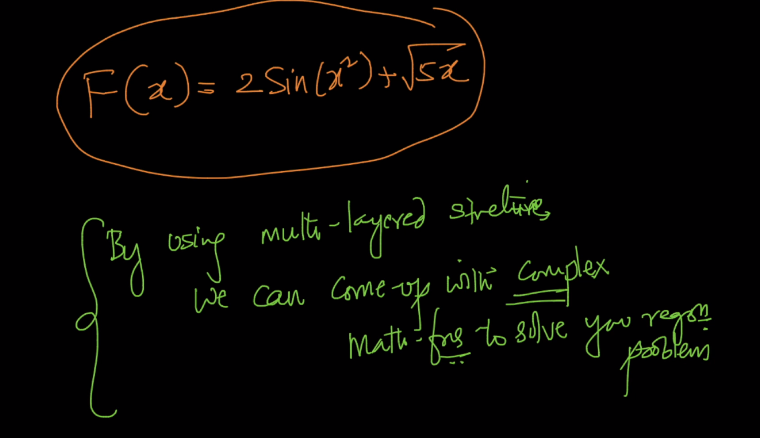 F(x) = 2 Sin(x²) + √5x
By using multi-layered structures
we can come-up with complex
Math-fns to solve your regn
problems